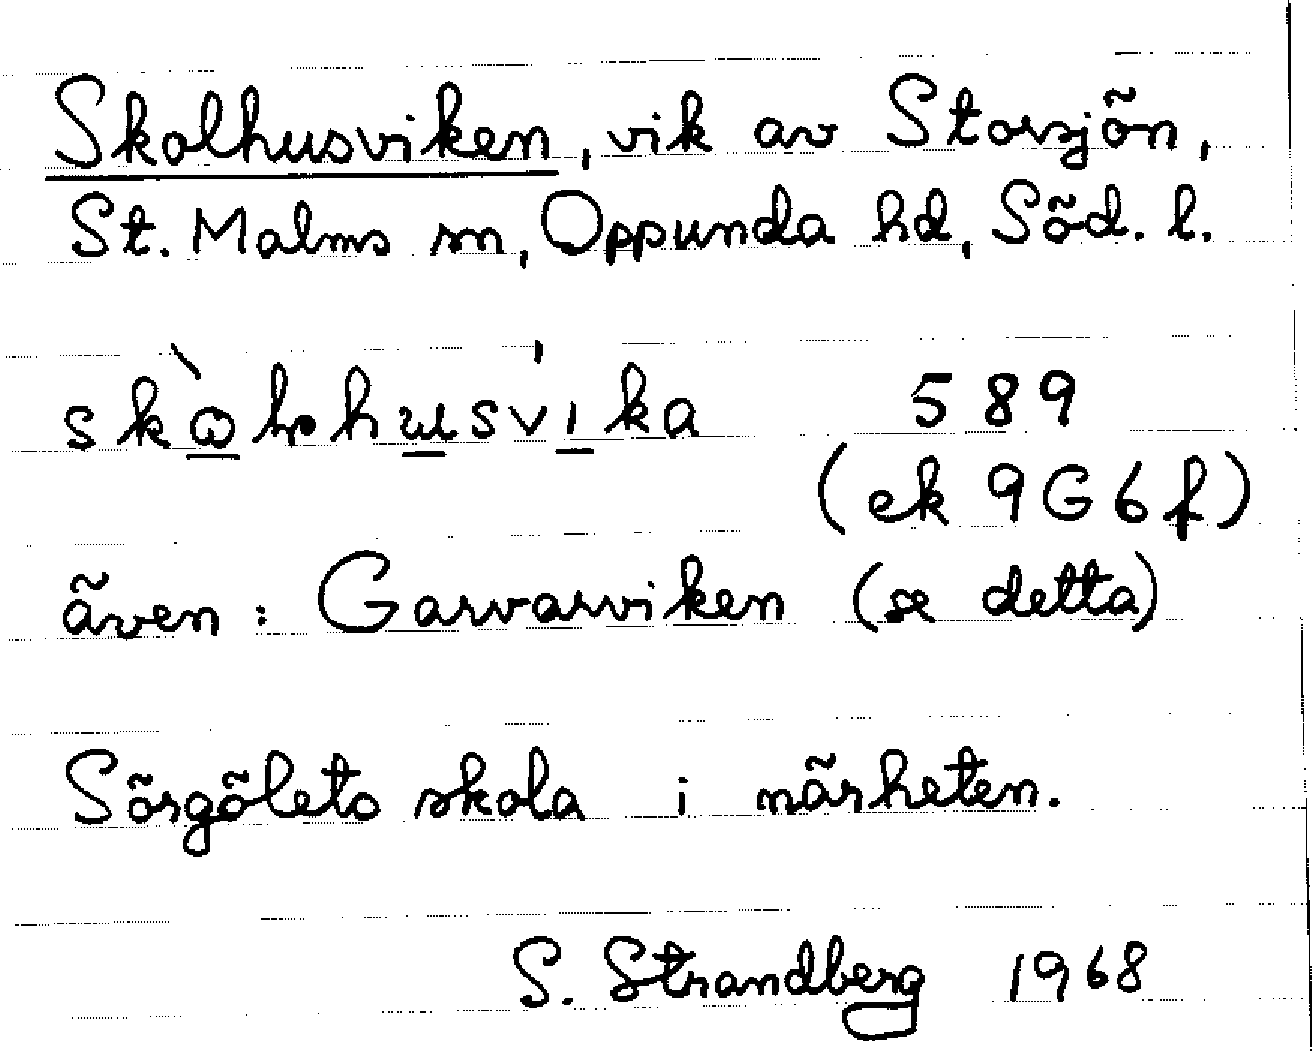 Skolhusviken, vik av Storsjön,
St. Malms sn, Oppunda hd, Söd. l.
589
(ek 9G6f)
även: Garvarviken (se detta)
Sörgölets skola i närheten.
S. Strandberg 1968